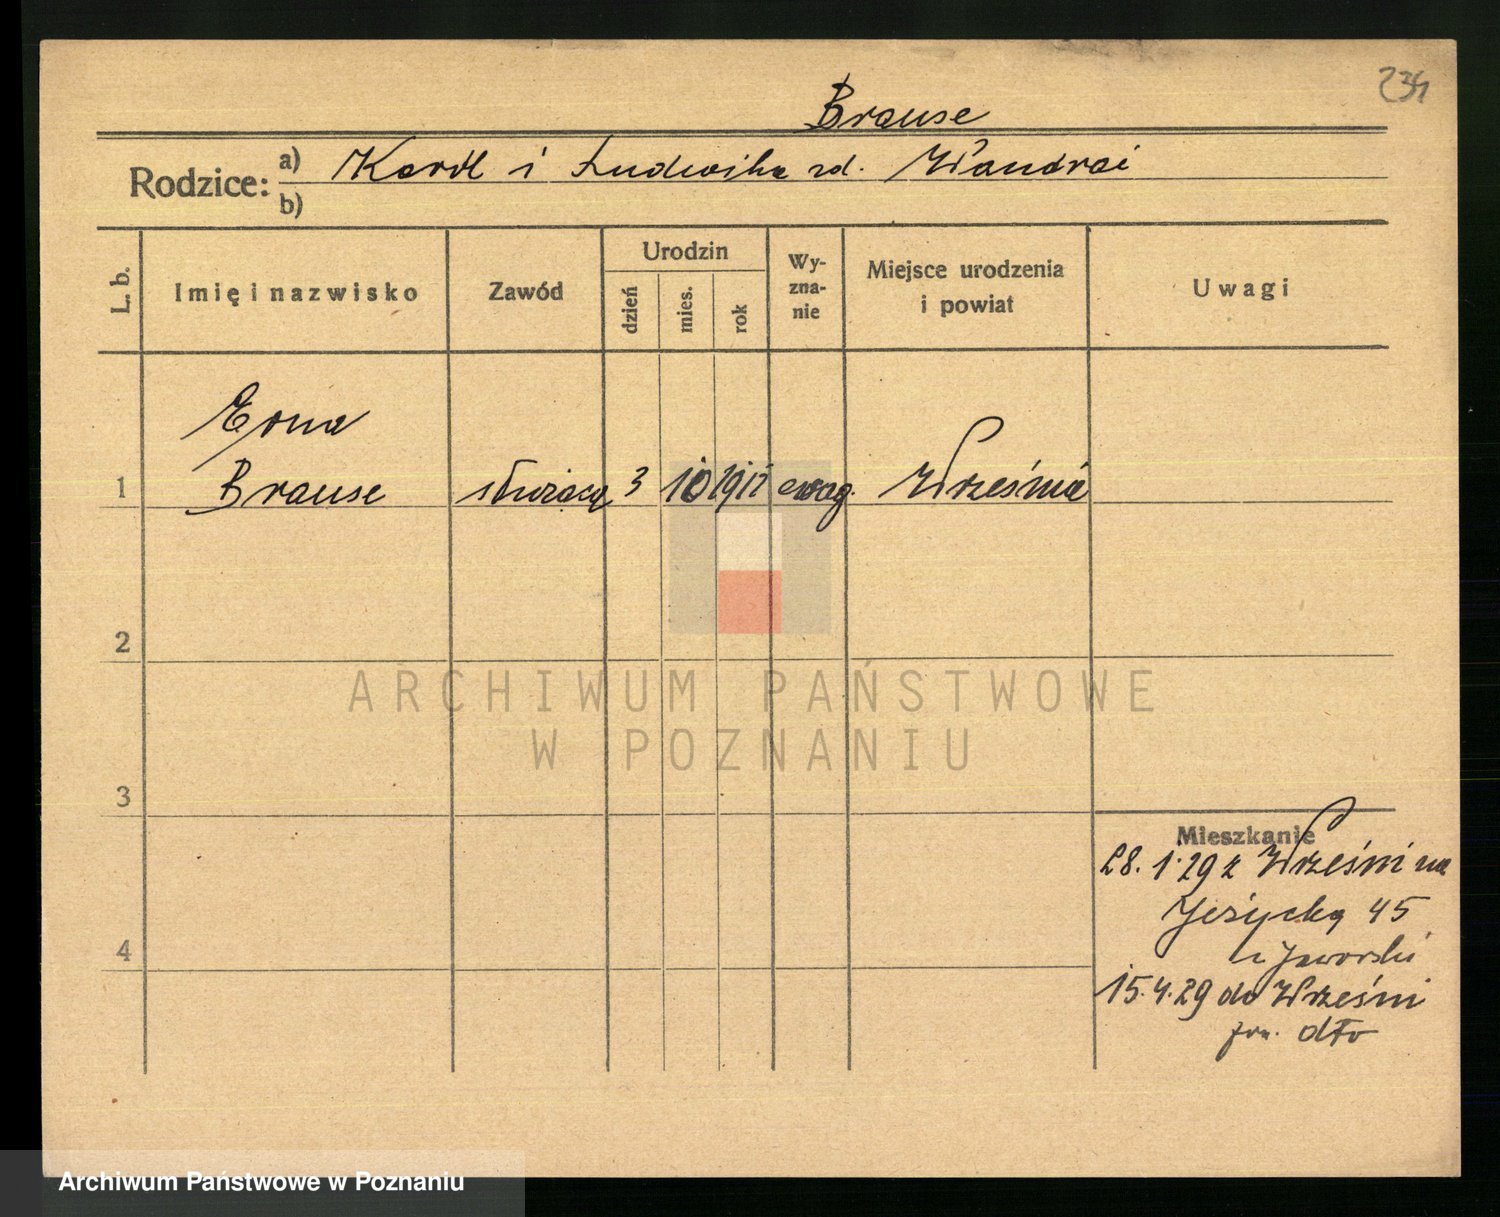 234
Brause
Rodzice: a) Karol i Ludwika zd. Wandrai
b)
L. b.
Imię i nazwisko
Zawód
Urodzin
dzień
mies.
rok
Wy-
zna-
nie
Miejsce urodzenia
i powiat
Uwagi
Erna
1 Brause służąca 3 10 1911 ewag. Września
2
3
4
Mieszkanie
28.1.29 z Wrześni na
Jeżycką 45
u Jaworski
15.4.29 do Wrześni
dto
ARCHIWUM PAŃSTWOWE
W POZNANIU
Archiwum Państwowe w Poznaniu